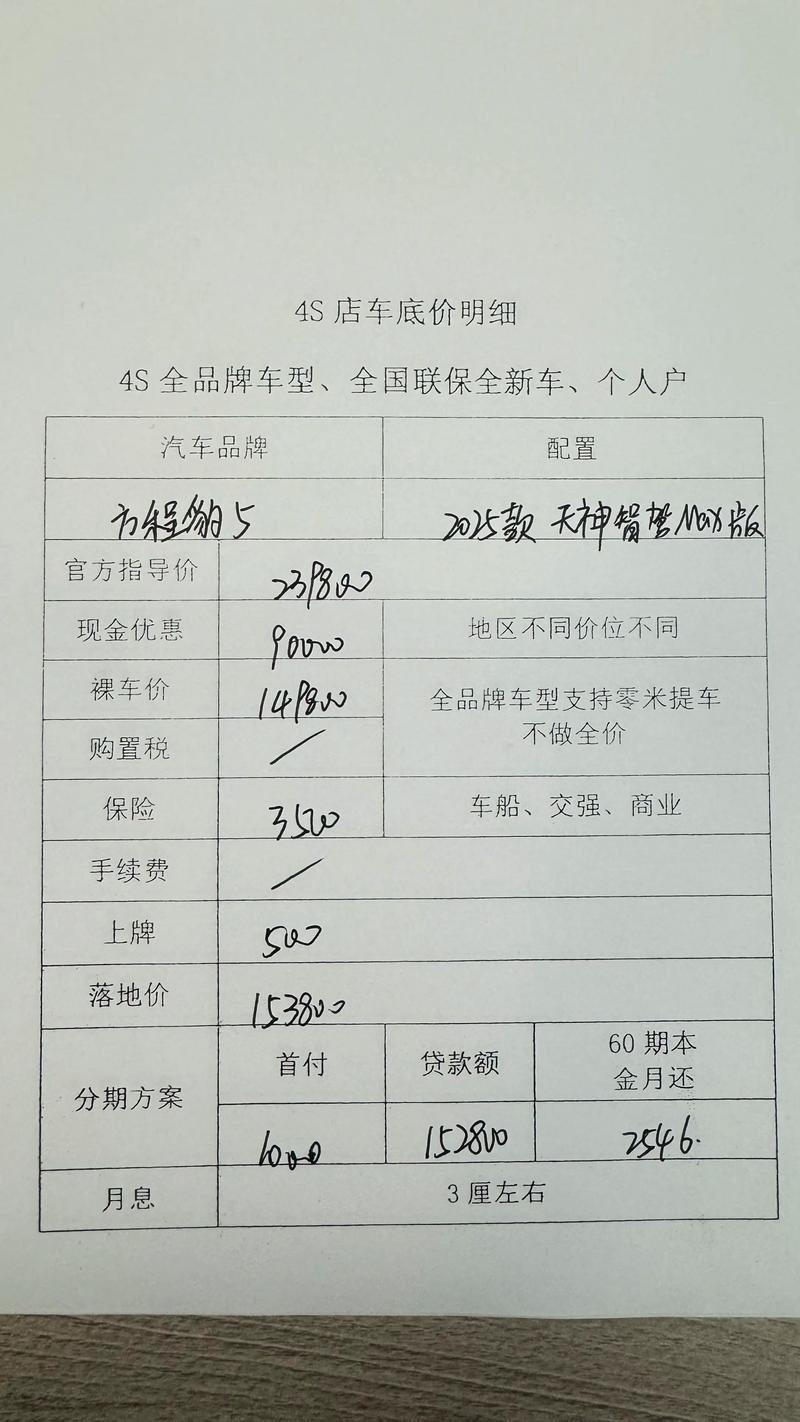 4S 店车底价明细
4S 全品牌车型、全国联保全新车、个人户
汽车品牌 配置
方程豹5 2025款 天神智驾Max版
官方指导价 239800
现金优惠 90000 地区不同价位不同
裸车价 149800 全品牌车型支持零米提车
不做全价
购置税 /
保险 3500 车船、交强、商业
手续费 /
上牌 500
落地价 153800
分期方案 首付 贷款额 60 期本
金月还
1000 152800 2546.
月息 3 厘左右